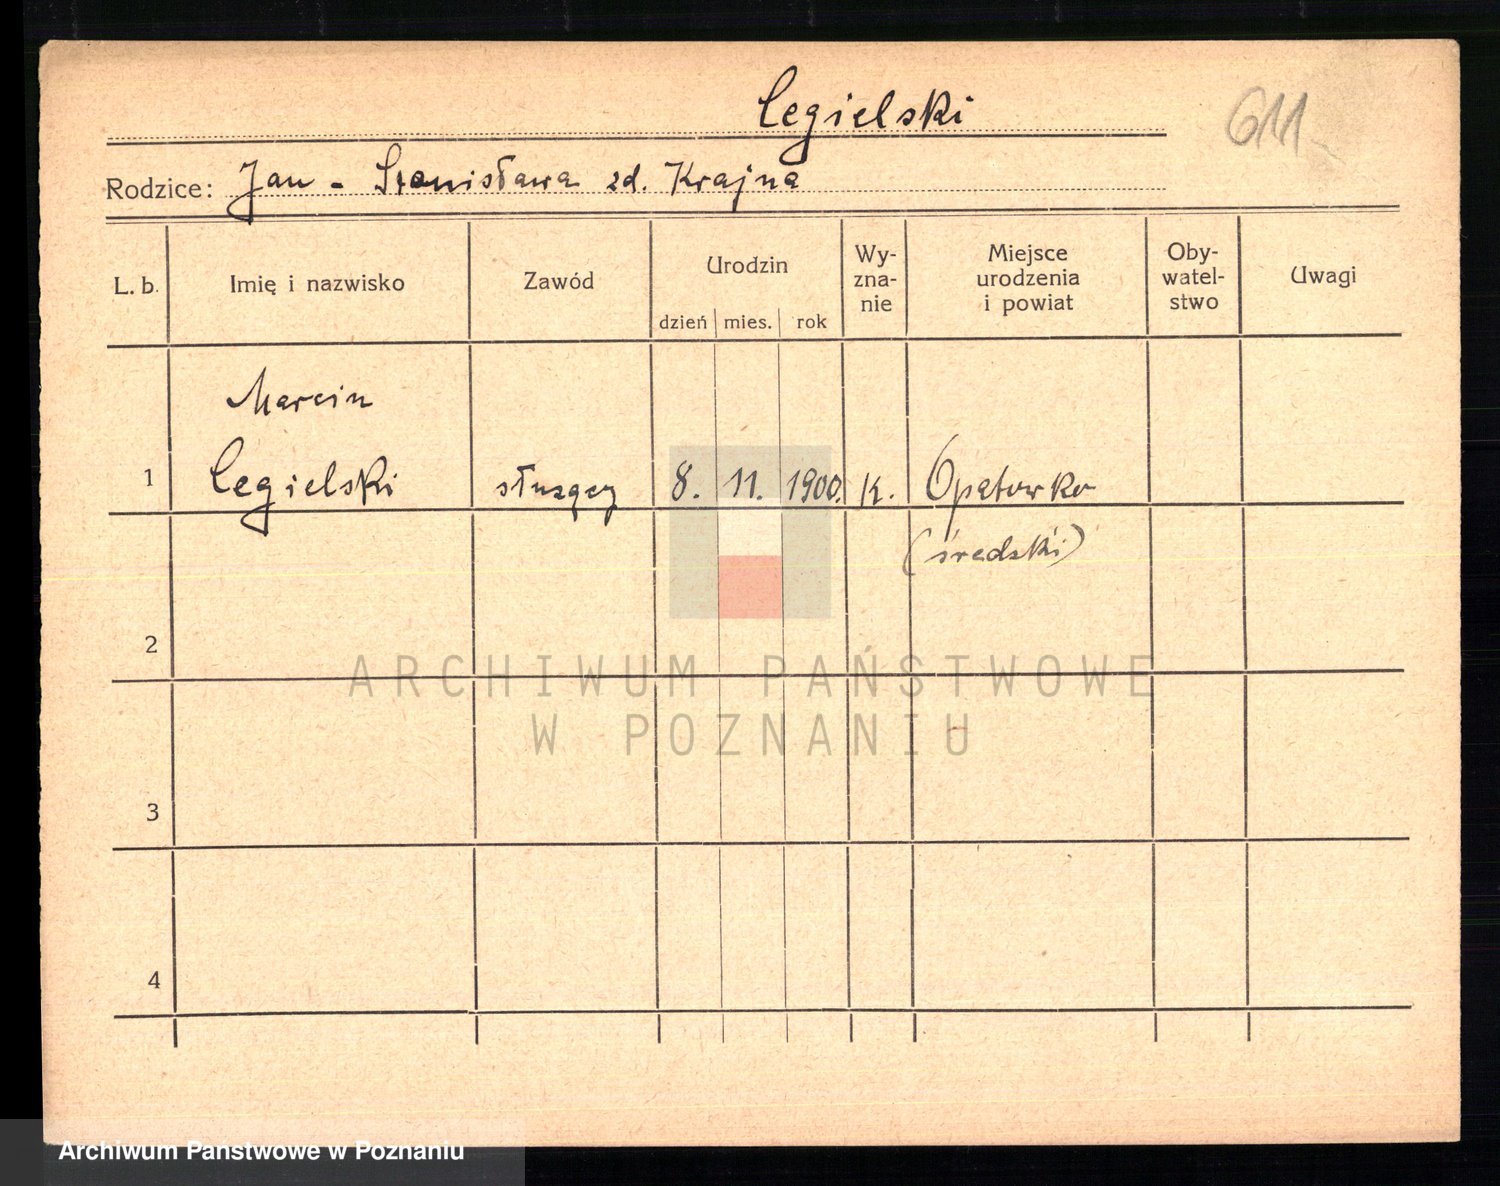 Cegielski
611
Rodzice: Jan - Stanisława zd. Krajna
L. b. Imię i nazwisko Zawód Urodzin dzień mies. rok Wy-zna-nie Miejsce urodzenia i powiat Oby-watel-stwo Uwagi
Marcin
1 Cegielski służący 8. 11. 1900. K. Opatowko
(średzki)
2
ARCHIWUM PAŃSTWOWE
W POZNANIU
3
4
Archiwum Państwowe w Poznaniu